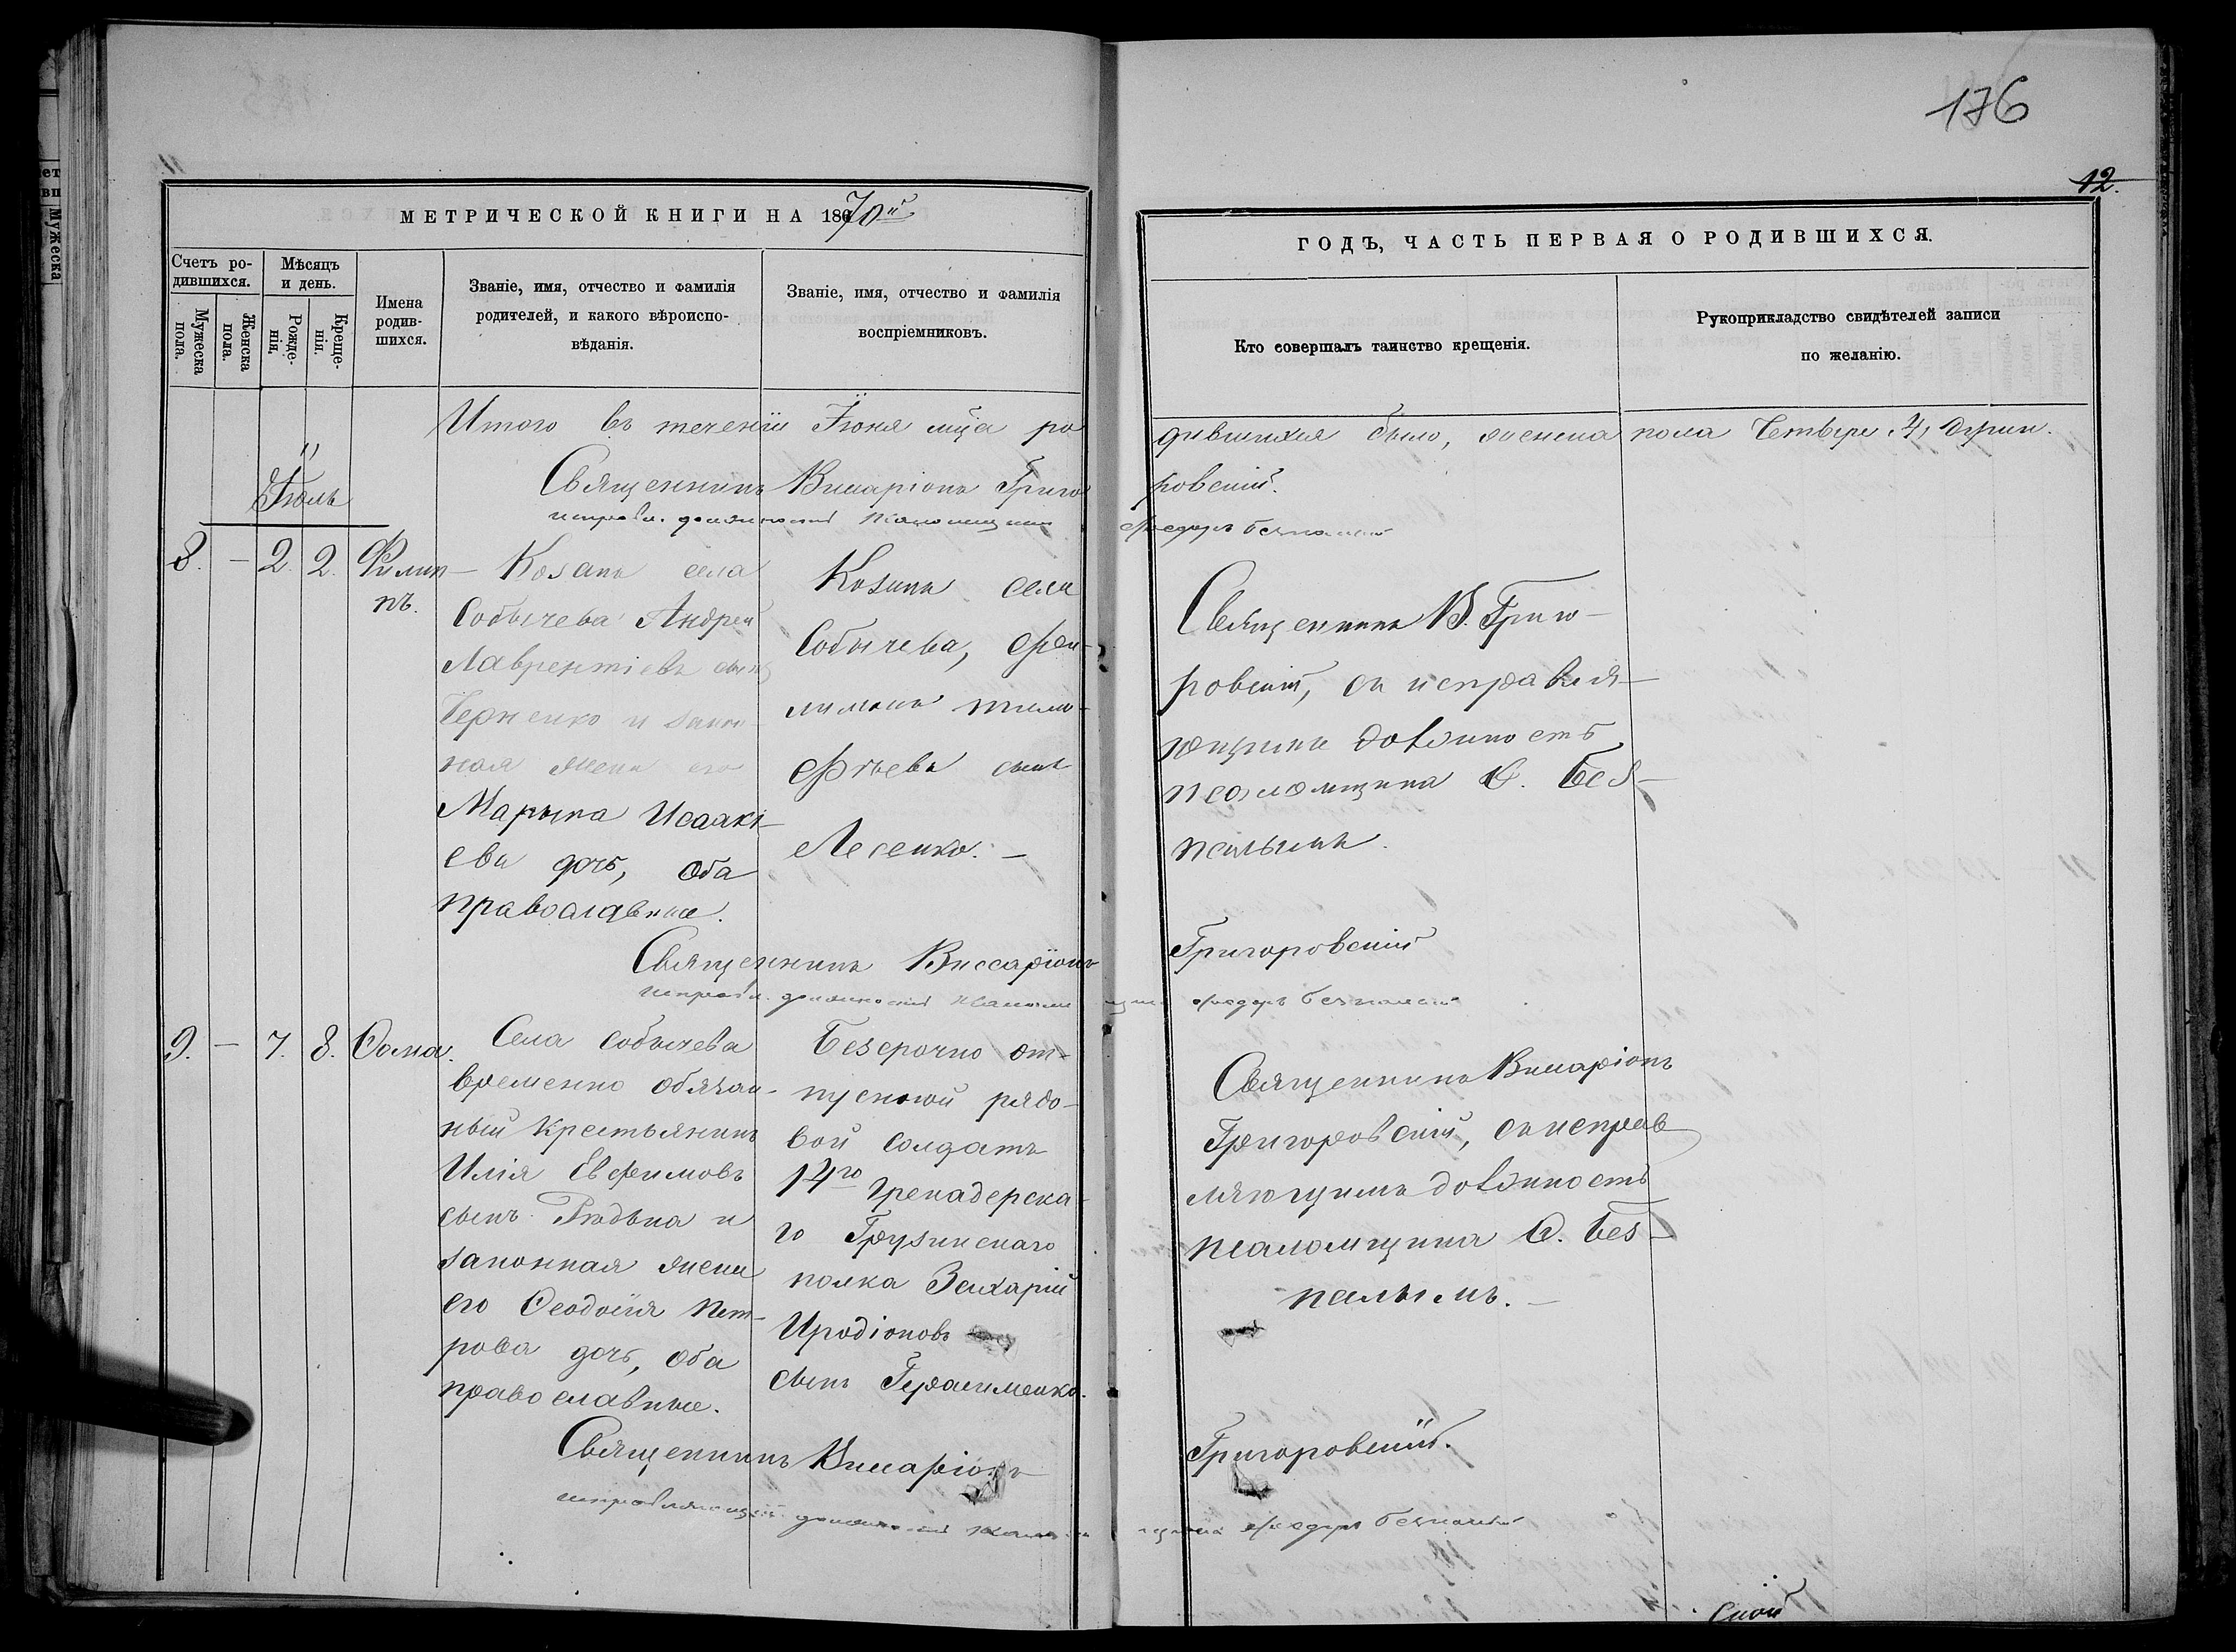 176
12.
МЕТРИЧЕСКОЙ КНИГИ НА 1870й
ГОДЪ, ЧАСТЬ ПЕРВАЯ О РОДИВШИХСЯ.
Счетъ ро-
дившихся.
Мужеска
пола.
Женска
пола.
Мѣсяцъ
и день.
Рожде-
нія.
Креще-
нія.
Имена
родив-
шихся.
Званіе, имя, отчество и фамилія
родителей, и какого вѣроиспо-
вѣданія.
Званіе, имя, отчество и фамилія
воспріемниковъ.
Кто совершалъ таинство крещенія.
Рукоприкладство свидѣтелей записи
по желанію.
Итого въ теченіи Іюня мца ро
дившихся было, женска пола Четыре, 4,
Священникъ Виссаріонъ Григо
ровскій.
исправл. должность псаломщика
Федоръ Безпалый
Іюль
8. — 2. 2. Филип-
пъ.
Козакъ села
Собычева Андрей
Лаврентіевъ сынъ
Черненко и закон-
ная жена его
Марына Исаакі-
ева дочь, оба
православные.
Козакъ села
Собычева, Фи-
лимонъ
сынъ
Лесенко. —
Священникъ В. Григо-
ровскій, съ исправля-
ющимъ должность
псаломщика Ѳ. Без-
палымъ.
Священникъ Виссаріонъ
Григоровскій
исправл. должность псаломщика Федоръ Безпалый
9. — 7. 8. Ѳома.
Села Собычева
временно обязан-
ный крестьянинъ
Илія Евфимовъ
сынъ и
законная жена
его Ѳеодосія Пет-
рова дочь, оба
православные.
Безсрочно от-
пускной рядо-
вой солдатъ
14го Гренадерска-
го Грузинскаго
полка Захарій
Иродіоновъ
сынъ Герасименко.
Священникъ Виссаріонъ
Григоровскій, съ исправ
ляющимъ должность
псаломщика Ѳ. Без-
палымъ. —
Священникъ Виссаріонъ
Григоровскій.
исправляющій должность псаломщика Федоръ Безпалый